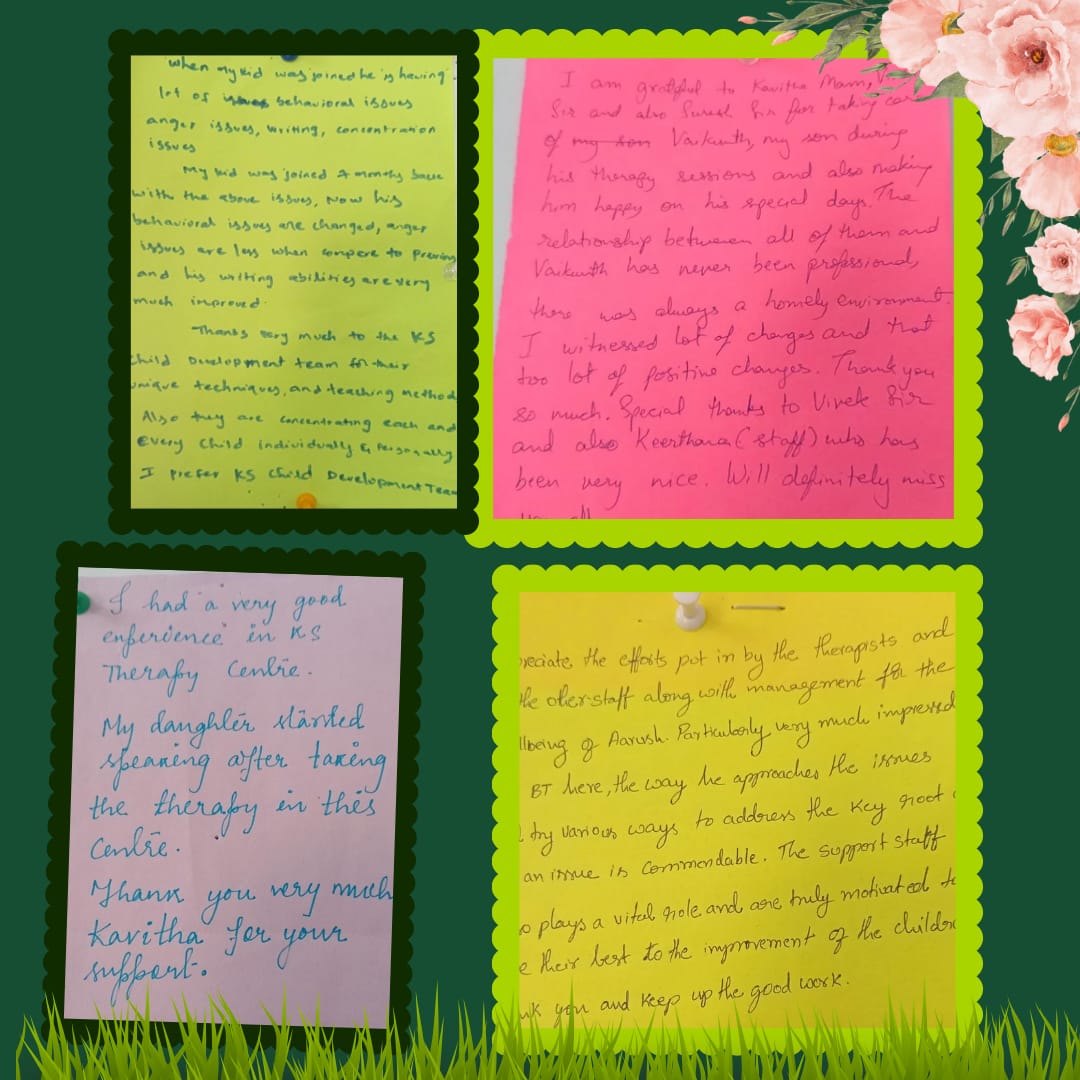 When my kid was joined he is having
lot of issues behavioral issues
anger issues, writing, concentration
issues
My kid was joined 4 months back
with the above issues, Now his
behavioral issues are changed, anger
issues are less when compare to previous
and his writing abilities are very
much improved.
Thanks very much to the KS
child Development team for their
unique techniques, and teaching method
Also they are concentrating each and
every child individually & Personally
I prefer KS child Development Team
I am grateful to Kavitha Mam,
Sir and also Suresh Sir for taking care
of my son Vaikunth, my son during
his therapy sessions and also making
him happy on his special days. The
relationship between all of them and
Vaikunth has never been professional,
there was always a homely environment.
I witnessed lot of changes and that
too lot of positive changes. Thank you
so much. Special thanks to Vivek Sir
and also Keerthana (staff) who has
been very nice. Will definitely miss
I had a very good
enperience in KS
Therapy Centre.
My daughter started
speaking after taking
the therapy in this
Centre.
Thank you very much
Kavitha for your
support.
reciate the efforts put in by the therapists and
the other staff along with management for the
llbeing of Aarush. Particularly very much impressed
BT here, the way he approaches the issues
try various ways to address the key root
an issue is commendable. The support staff
o plays a vital role and are truly motivated to
e their best to the improvement of the children
nk you and keep up the good work.